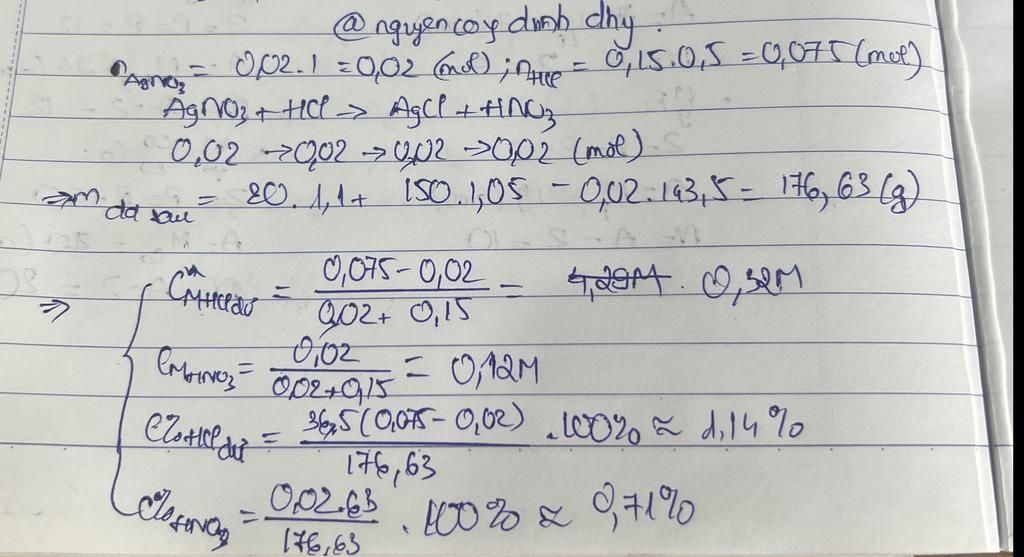 @nguyencoy dinh dhy.
nAgNO3 = 0,02.1 = 0,02 (mol) ; nHCl = 0,15.0,5 = 0,075 (mol)
AgNO3 + HCl → AgCl + HNO3
0,02 → 0,02 → 0,02 → 0,02 (mol)
⇒ m dd sau = 20.1,1 + 150.1,05 - 0,02.143,5 = 176,63 (g)
⇒ CM HCl dư = (0,075 - 0,02)/(0,02 + 0,15) = 0,32M
CM HNO3 = 0,02/(0,02 + 0,15) = 0,12M
C% HCl dư = 36,5(0,075 - 0,02)/176,63 .100% ≈ 1,14%
C% HNO3 = 0,02.63/176,63 .100% ≈ 0,71%